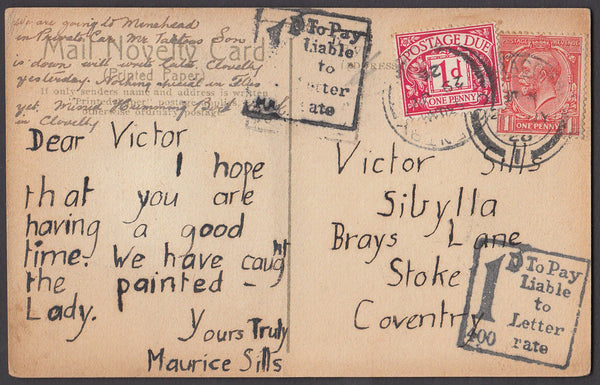 We are going to Minehead
in Private Car. Mr Son
is down will write later Clovelly
yesterday. Nothing special in Flies
yet. Missed Humming Bird Hawk
in Clovelly
Mail Novelty Card
(Printed Paper)
If only sender's name and address is written
otherwise ordinary postage
Dear Victor
I hope
that you are
having a good
time. We have caught
the painted -
Lady.
Yours Truly
Maurice Sills
1D To Pay
Liable
to
Letter
rate
POSTAGE DUE
1D
ONE PENNY
ONE PENNY
Victor Sills
Sibylla
Brays Lane
Stoke
Coventry
1D To Pay
Liable
to
Letter
rate
400